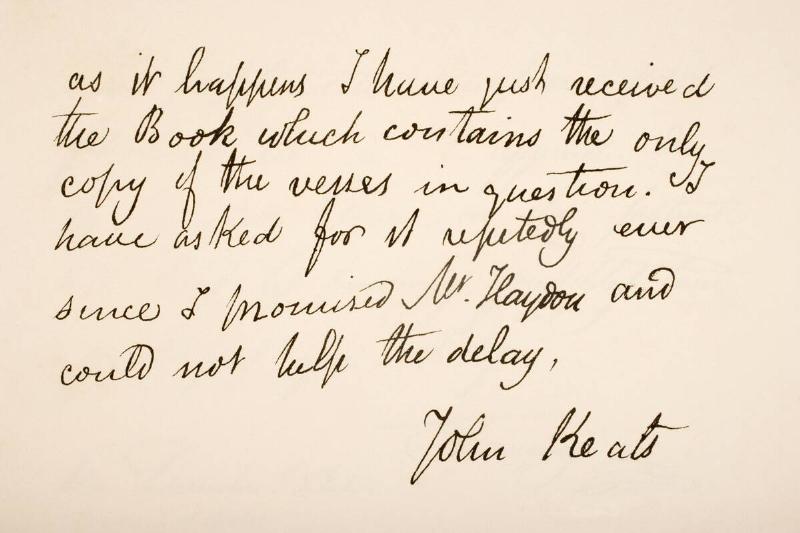 as it happens I have just received
the Book which contains the only
copy of the verses in question. I
have asked for it repeatedly ever
since I promised Mr. Haydon and
could not help the delay,
John Keats